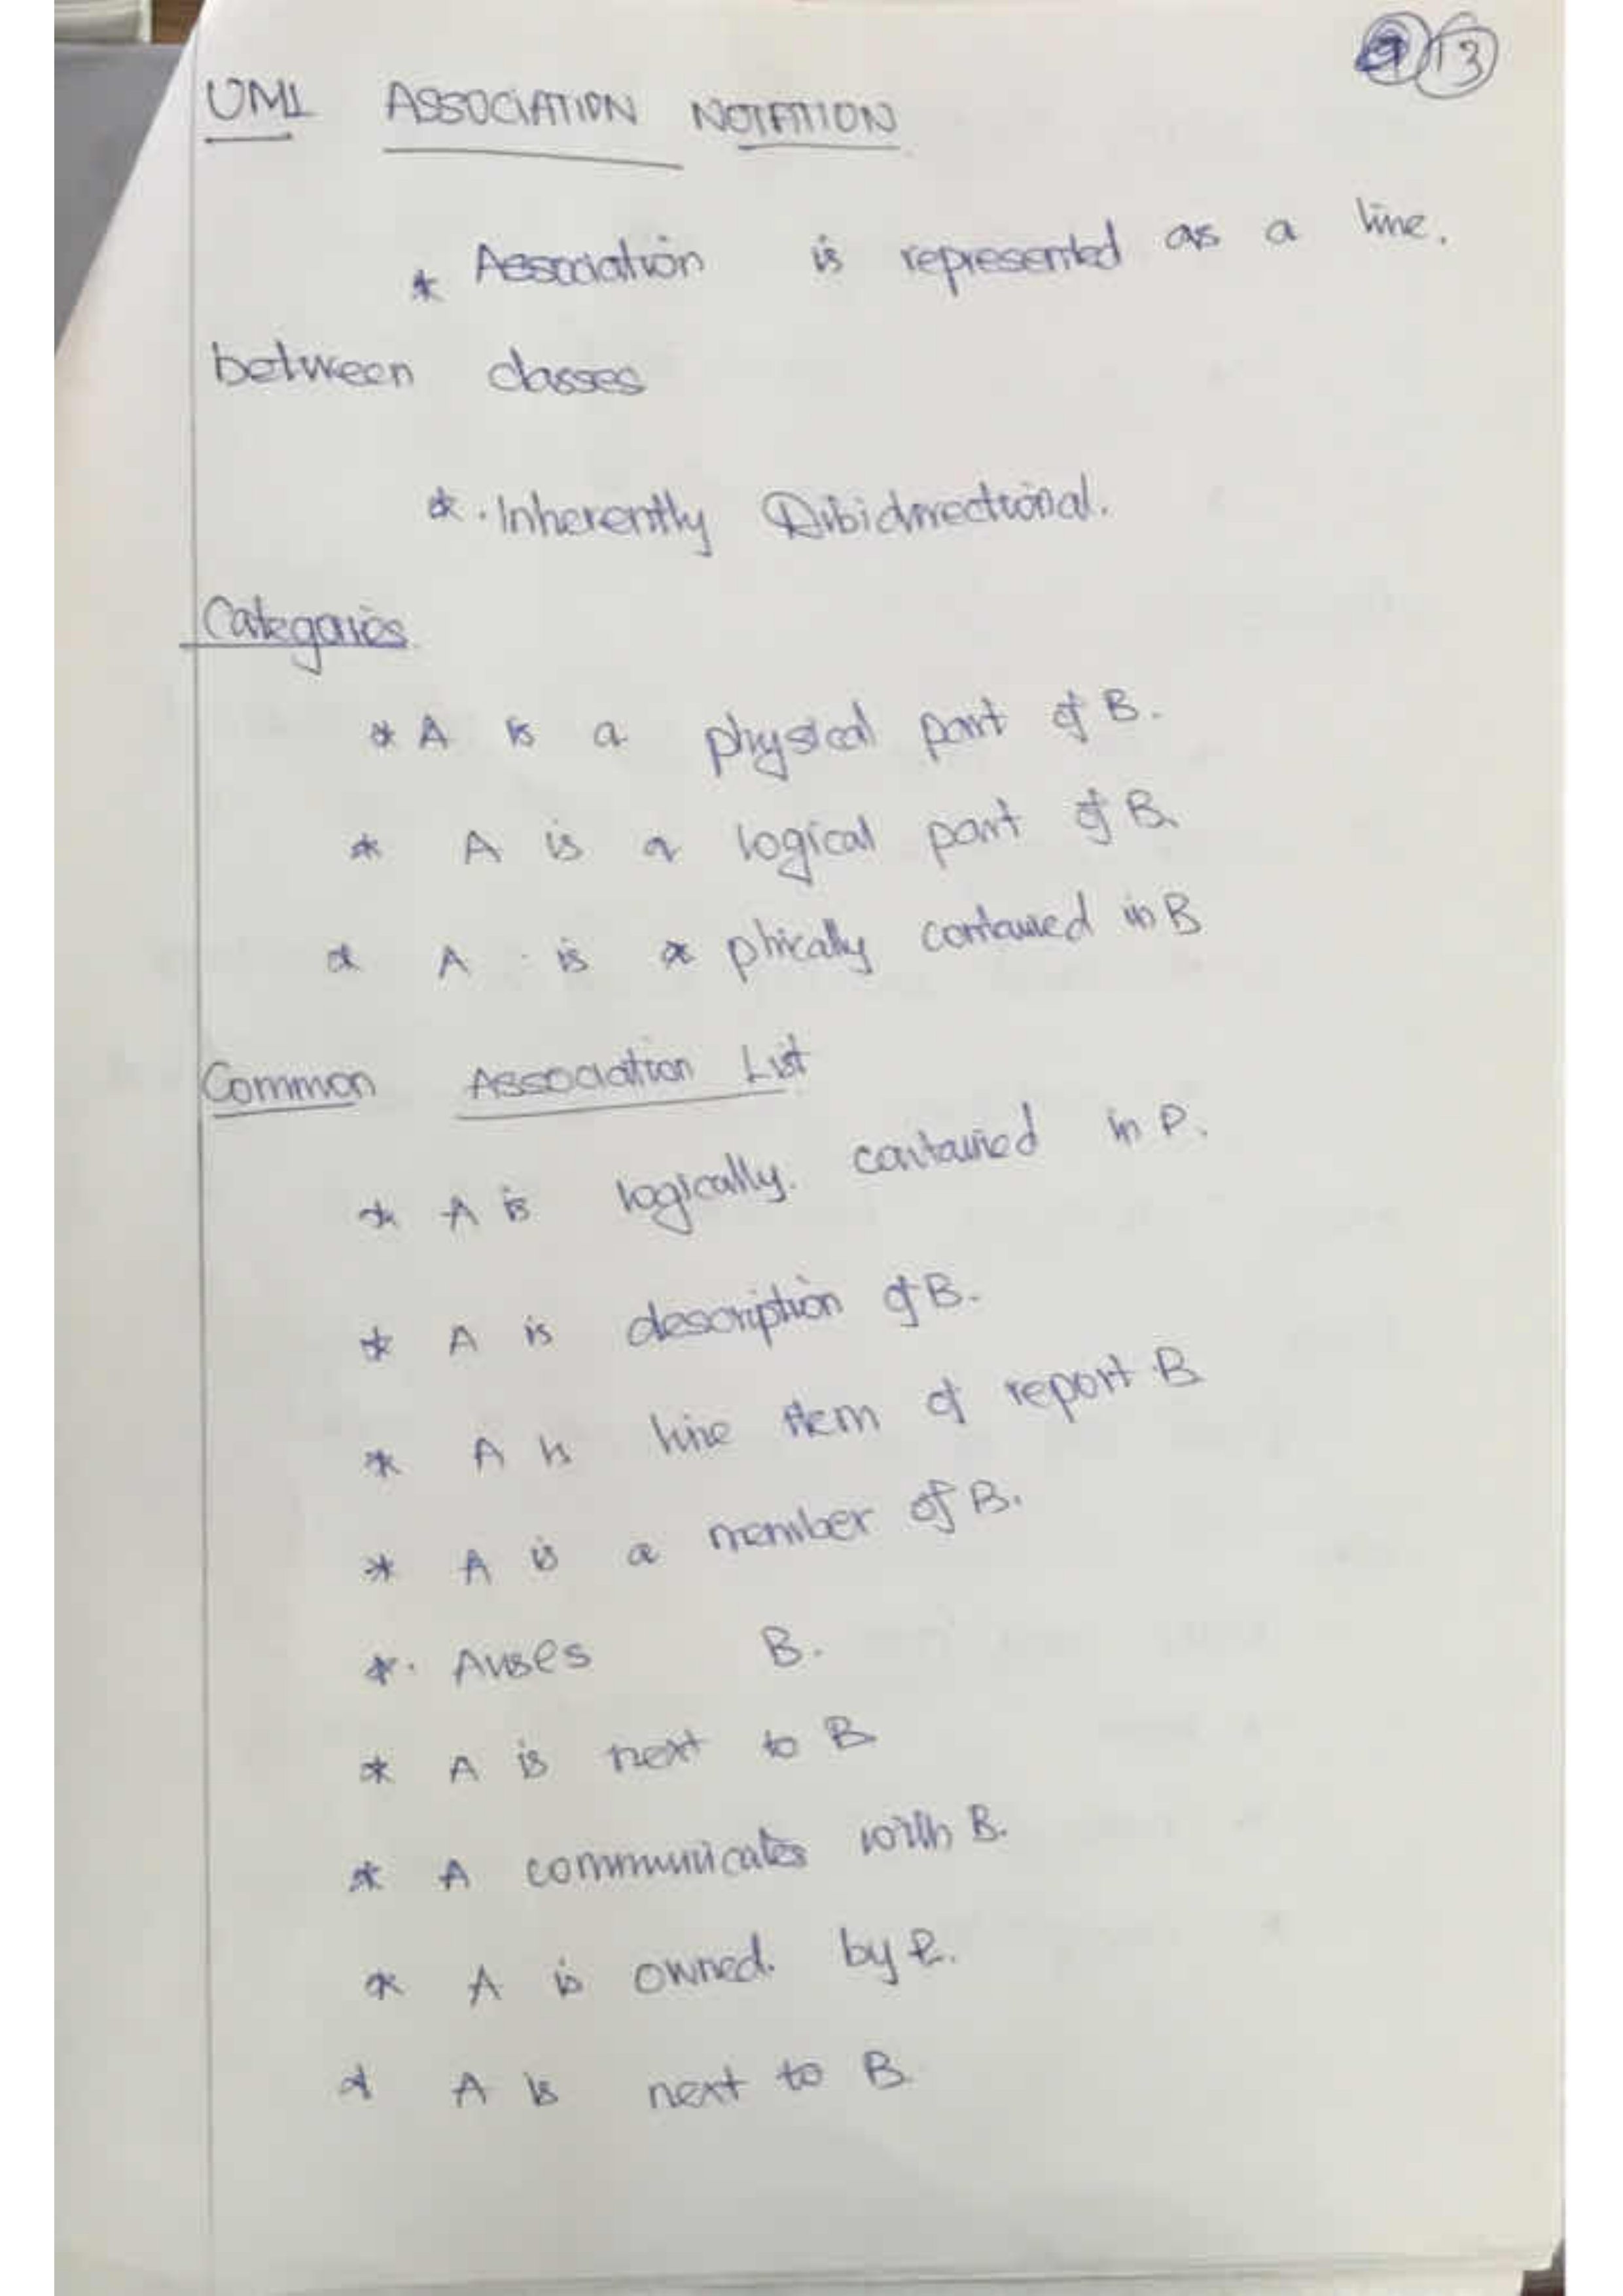 13
UML ASSOCIATION NOTATION
* Association is represented as a line.
between classes
* . Inherently Bibidirectional.
Categories
* A is a physical part of B.
* A is a logical part of B.
* A is phically contained in B
Common Association List
* A is logically. contained in P.
* A is description of B.
* A is line item of report B
* A is a member of B.
* . A uses B.
* A is next to B
* A communicates with B.
* A is owned. by B.
* A is next to B.